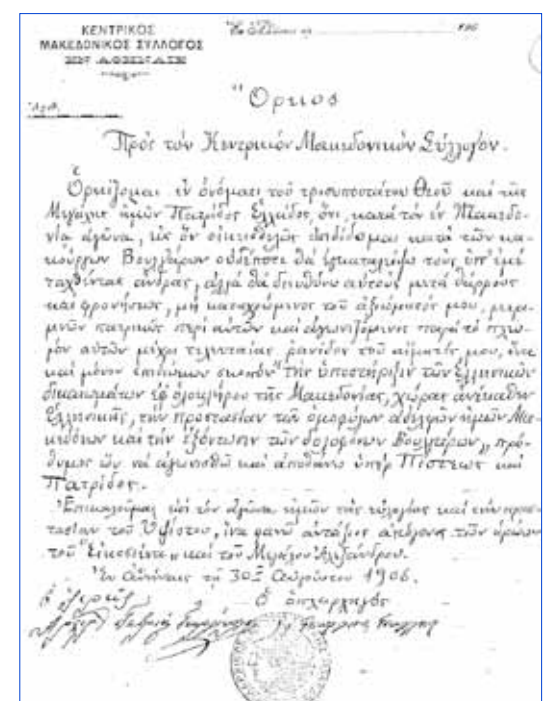 ΚΕΝΤΡΙΚΟΣ
ΜΑΚΕΔΟΝΙΚΟΣ ΣΥΛΛΟΓΟΣ
ΕΝ ΑΘΗΝΑΙΣ
Ἐν Ἀθήναις τῇ 190
Ἀριθ.
Ὅρκος
Πρὸς τὸν Κεντρικὸν Μακεδονικὸν Σύλλογον.
Ὁρκίζομαι ἐν ὀνόματι τοῦ τρισυποστάτου Θεοῦ καὶ τῆς
Μεγάλης ἡμῶν Πατρίδος Ἑλλάδος, ὅτι, κατὰ τὸν ἐν Μακεδο-
νίᾳ ἀγῶνα, εἰς ὃν οἰκειοθελῶς ἐπιδίδομαι κατὰ τῶν κα-
κούργων Βουλγάρων οὐδέποτε θὰ ἐγκαταλείψω τοὺς ὑπ' ἐμὲ
ταχθέντας ἄνδρας, ἀλλὰ θὰ διευθύνω αὐτοὺς μετὰ θάρρους
καὶ φρονήσεως, μὴ καταχρώμενος τοῦ ἀξιώματός μου, μεριμ-
νῶν πατρικῶς περὶ αὐτῶν καὶ ἀγωνιζόμενος παρὰ τὸ πλευ-
ρὸν αὐτῶν μέχρι τελευταίας ρανίδος τοῦ αἵματός μου, ἕνα
καὶ μόνον ἐπιδιώκων σκοπὸν "τὴν ὑποστήριξιν τῶν Ἑλληνικῶν
δικαιωμάτων ἐφ' ὁλοκλήρου τῆς Μακεδονίας, χώρας ἀνέκαθεν
Ἑλληνικῆς, τὴν προστασίαν τῶν ὁμοφύλων ἀδελφῶν ἡμῶν Μα-
κεδόνων καὶ τὴν ἐξόντωσιν τῶν δολοφόνων Βουλγάρων„ πρό-
θυμος ὢν νὰ ἀγωνισθῶ καὶ ἀποθάνω ὑπὲρ Πίστεως καὶ
Πατρίδος.
Ἐπικαλοῦμαι ἐπὶ τὸν ἀγῶνα ἡμῶν τὰς εὐλογίας καὶ τὴν προσ-
τασίαν τοῦ Ὑψίστου, ἵνα φανῶ ἀντάξιος ἀπόγονος τῶν ἡρώων
τοῦ "Εἰκοσιένα„ καὶ τοῦ Μεγάλου Ἀλεξάνδρου.
Ἐν Ἀθήναις τῇ 30ῇ Αὐγούστου 1906.
Ὁ ἱερεὺς Ὁ ὁπλαρχηγὸς